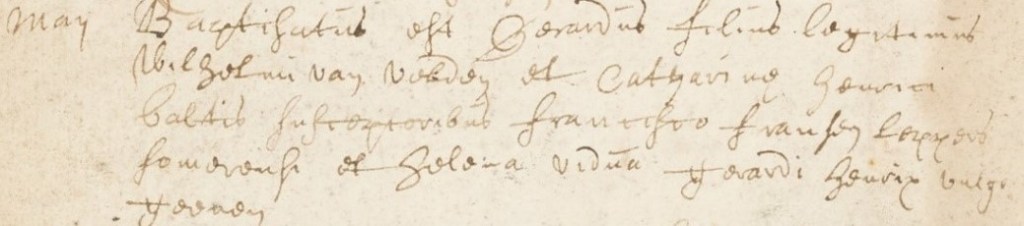 May Baptisatus est Gerardus filius legitimus
Wilhelmi van velden et Catharine henrici
baltis susceptoribus francisco fransen leppers
somerensi et helena vidua gerardi henrix vulgo
geenen